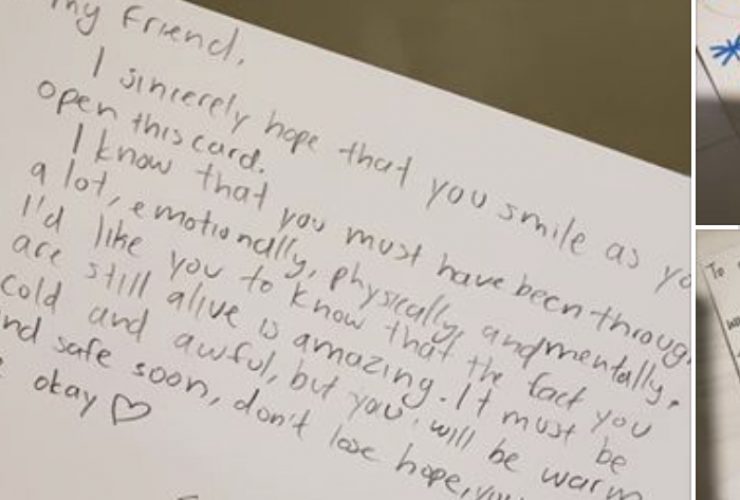 my Friend,
I sincerely hope that you smile as yo
open this card.
I know that you must have been throug
a lot, emotionally, physically, and mentally,
I'd like you to know that the fact you
are still alive is amazing. It must be
cold and awful, but you will be warm
nd safe soon, don't lose hope, you
okay ♡
To